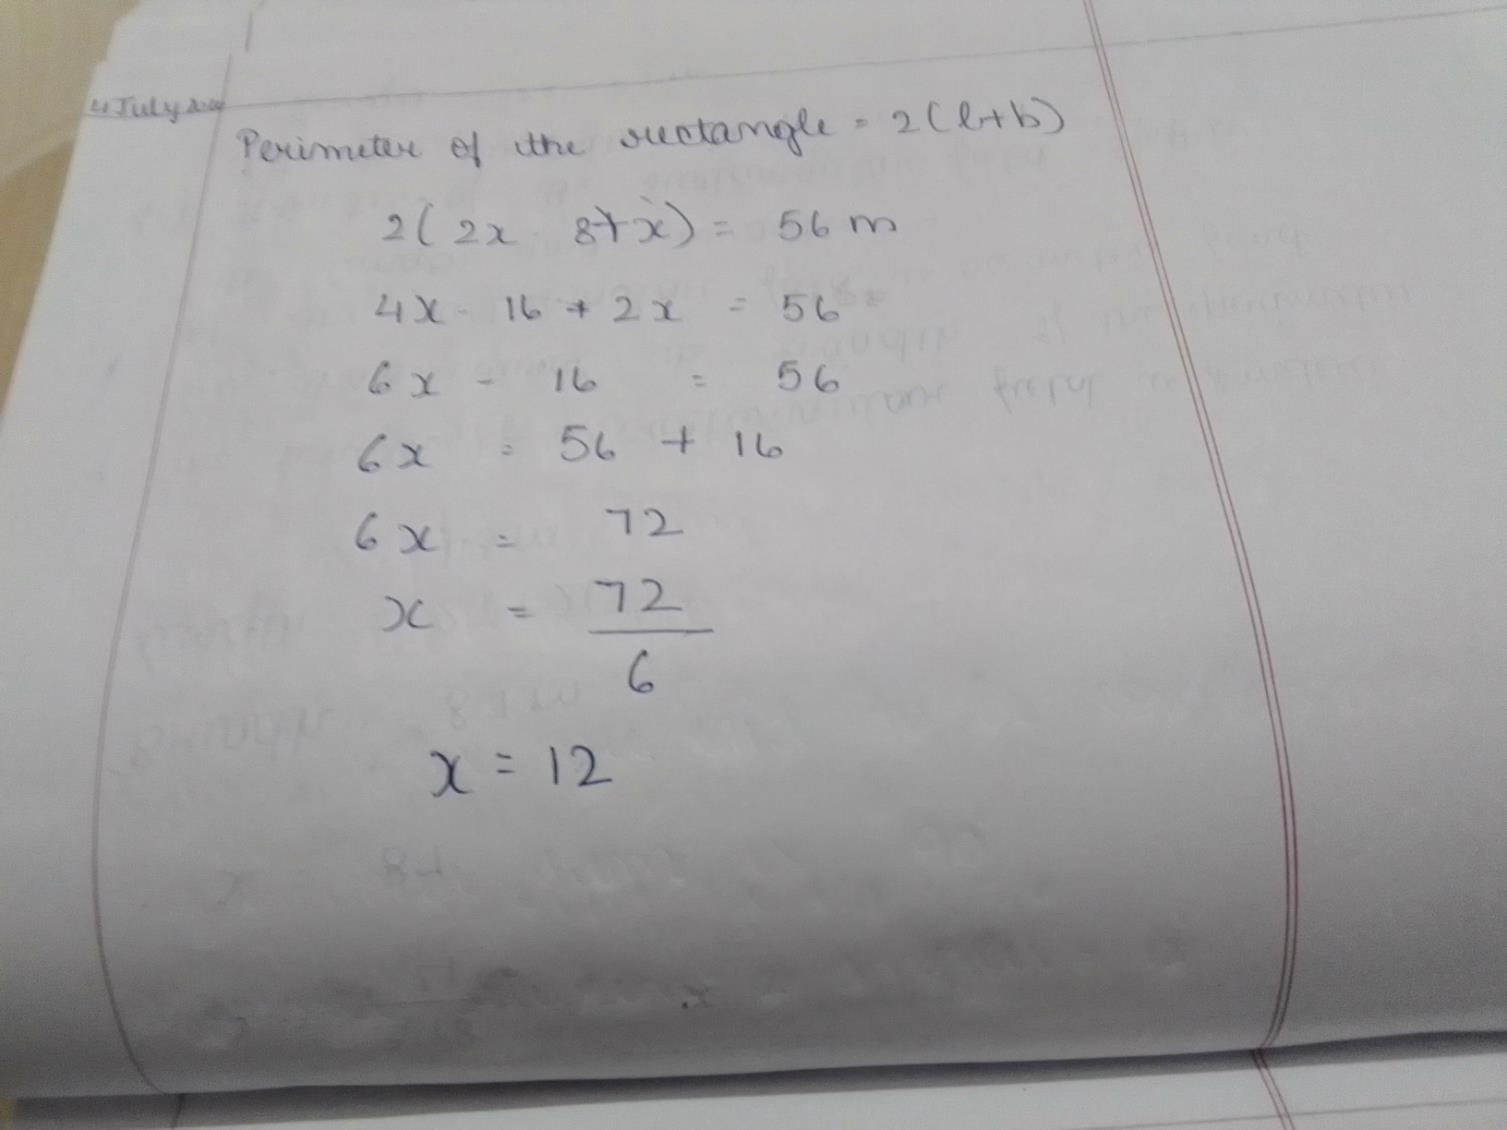 4 July
Perimeter of the rectangle = 2(l+b)
2(2x - 8+x) = 56 m
4x - 16 + 2x = 56
6x - 16 = 56
6x = 56 + 16
6x = 72
x = 72
6
x = 12